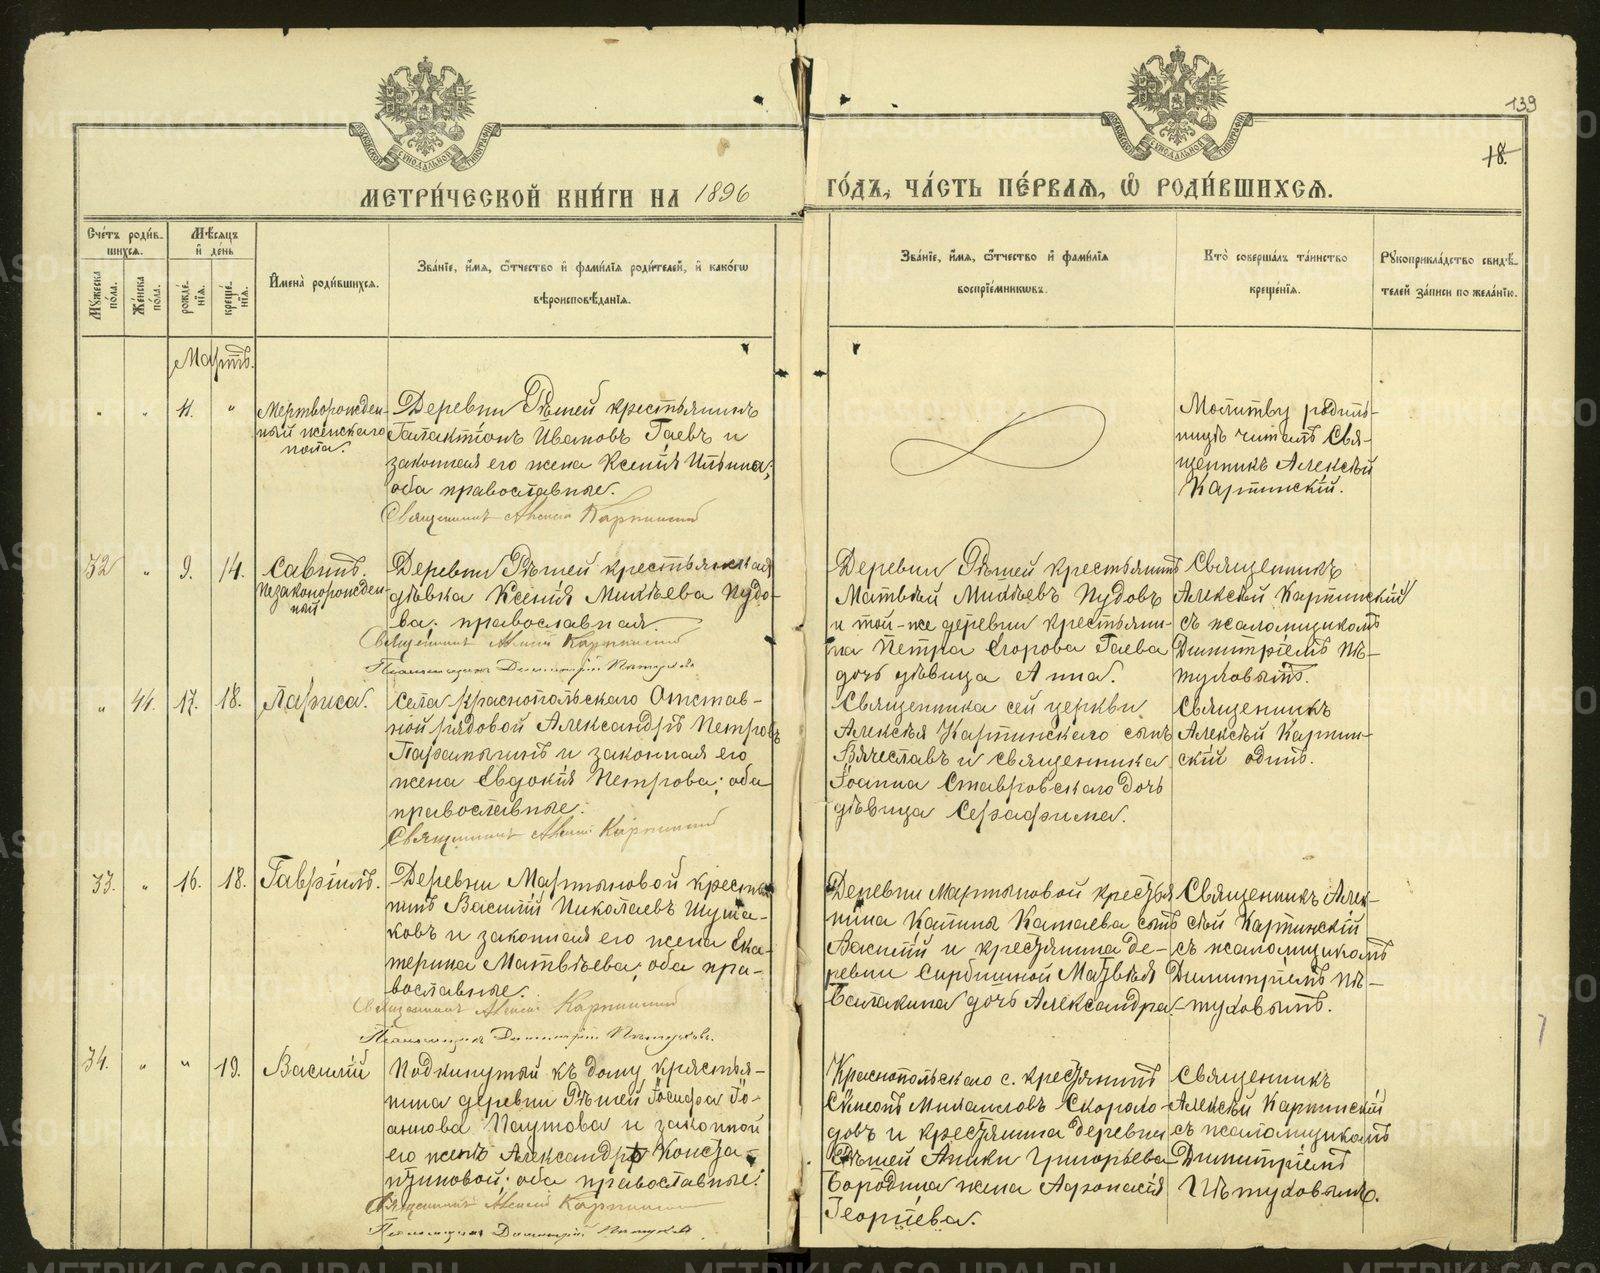 139
18.
МЕТРИ́ЧЕСКОЙ КНИ́ГИ НА 1896 ГО́ДЪ, ЧА́СТЬ ПЕ́РВАѦ, Ѽ РОДИ́ВШИХСѦ.
Сче́тъ роди́в-
шихсѧ.
Мꙋ́жеска по́ла.
Же́нска по́ла.
Мѣ́сѧцъ
и҆ де́нь
рожде́нїѧ.
креще́нїѧ.
И҆мена̀ роди́вшихсѧ.
Зва́нїе, и҆́мѧ, ѻ҆́тчество и҆ фами́лїѧ роди́телей, и҆ како́гѡ
вѣроисповѣ́данїѧ.
Зва́нїе, и҆́мѧ, ѻ҆́тчество и҆ фами́лїѧ
воспрїе́мникѡвъ.
Кто̀ соверша́лъ та́инство
креще́нїѧ.
Рꙋкоприкла́дство свидѣ́-
телей за́писи по жела́нїю.
Мартъ.
" " 11. "
Мертворожден-
ный женскаго
пола.
Деревни Рѣшей крестьянинъ
Галактіонъ Ивановъ Гаевъ и
законная его жена Ксенія Ильина,
оба православные.
Священникъ Алексій Карпинскій
Молитву родиль-
ницѣ читалъ Свя-
щенникъ Алексѣй
Карпинскій.
32 " 9. 14.
Савинъ.
Незаконорожден-
ный
Деревни Рѣшей крестьянская
дѣвка Ксенія Михѣева Пудо-
ва; православная.
Священникъ Алексій Карпинскій
Псаломщикъ Димитрій Пѣтуховъ
Деревни Рѣшей крестьянинъ
Матвѣй Михѣевъ Пудовъ
и той-же деревни крестьяни-
на Петра Егорова Гаева
дочь дѣвица Анна.
Священникъ
Алексѣй Карпинскій
съ псаломщикомъ
Димитріемъ Пѣ-
туховымъ.
" 44. 17. 18.
Лариса.
Села Краснопольскаго Отстав-
ной рядовой Александръ Петровъ
и законная его
жена Евдокія Петрова; оба
православные.
Священникъ Алексій Карпинскій
Священника сей церкви
Алексѣя Карпинскаго сынъ
Вячеславъ и священника
Іоанна Ставровскаго дочь
дѣвица Серафима.
Священникъ
Алексѣй Карпин-
скій одинъ.
33. " 16. 18.
Гавріилъ.
Деревни Мартыновой крестья-
нинъ Василій Николаевъ Шума-
ковъ и законная его жена Ека-
терина Матвѣева; оба пра-
вославные.
Священникъ Алексій Карпинскій
Псаломщикъ Димитрій Пѣтуховъ.
Деревни Мартыновой крестья-
нина Калины Катаева сынъ
Василій и крестьянина де-
ревни Сарбишной Матвѣя
Балакина дочь Александра.
Священникъ Алек-
сѣй Карпинскій
съ псаломщикомъ
Димитріемъ Пѣ-
туховымъ.
34. " " 19.
Василій
Подкинутый къ дому крестья-
нина деревни Рѣшей Іосифа Іо-
аннова Паутова и законной
его женѣ Александрѣ Конста-
нтиновой; оба православные.
Священникъ Алексій Карпинскій
Псаломщикъ Димитрій Пѣтуховъ.
Краснопольскаго с. крестьянинъ
Симеонъ Михаиловъ Скорохо-
довъ и крестьянина деревни
Рѣшей Аники Григорьева
Бородина жена Афонасія
Георгіева.
Священникъ
Алексѣй Карпинскій
съ псаломщикомъ
Димитріемъ
Пѣтуховымъ.